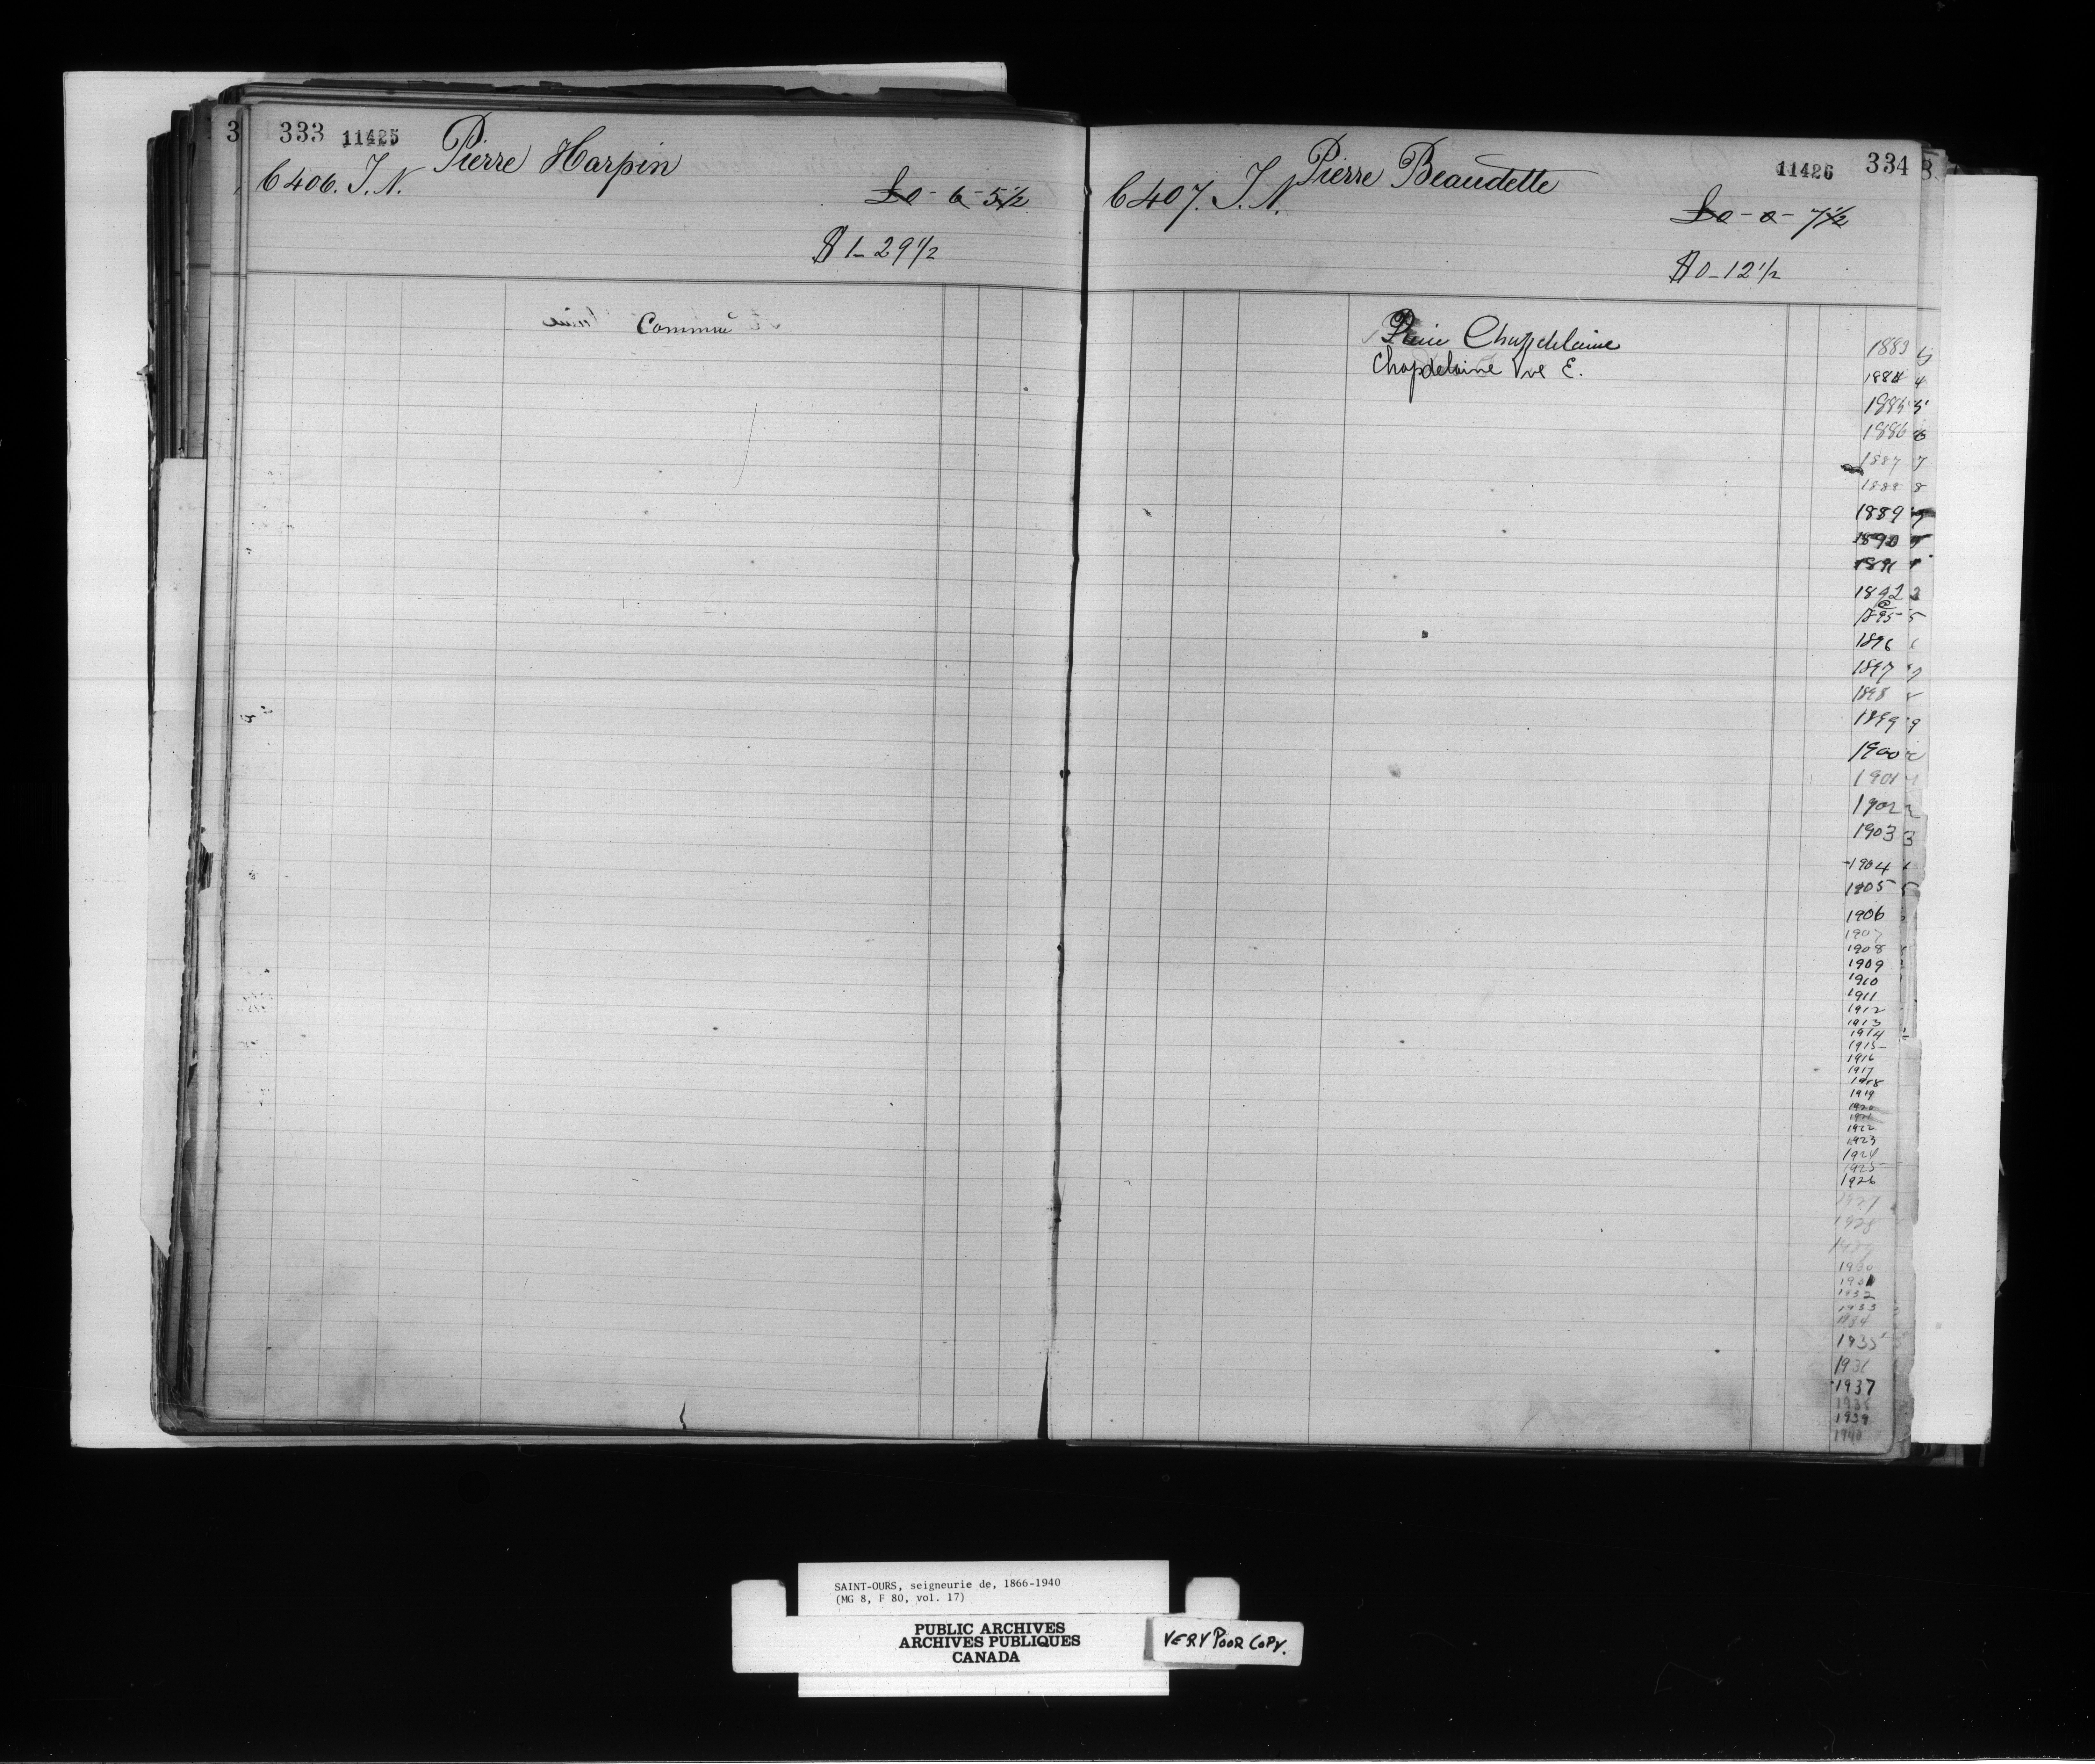 3 333 11425 Pierre Harpin
6406. T.N.
£0-6-5½
$1-29½
Commué
Pierre Beaudette 11426 334
6407. T.N.
£0-0-7½
$0-12½
Chapdelaine
Chapdelaine Vve E.
1883
1884 4
1885 5
1886 6
1887 7
1888 8
1889 9
1890
1891
1892 2
1895 5
1896
1897
1898
1899 9
1900
1901
1902 2
1903 3
1904
1905 5
1906
1907
1908
1909
1910
1911
1912
1913
1914
1915
1916
1917
1918
1919
1920
1921
1922
1923
1924
1925
1926
1927
1928
1929
1930
1931
1932
1933
1934
1935
1936
1937
1938
1939
1940
SAINT-OURS, seigneurie de, 1866-1940
(MG 8, F 80, vol. 17)
PUBLIC ARCHIVES
ARCHIVES PUBLIQUES
CANADA
VERY POOR COPY.